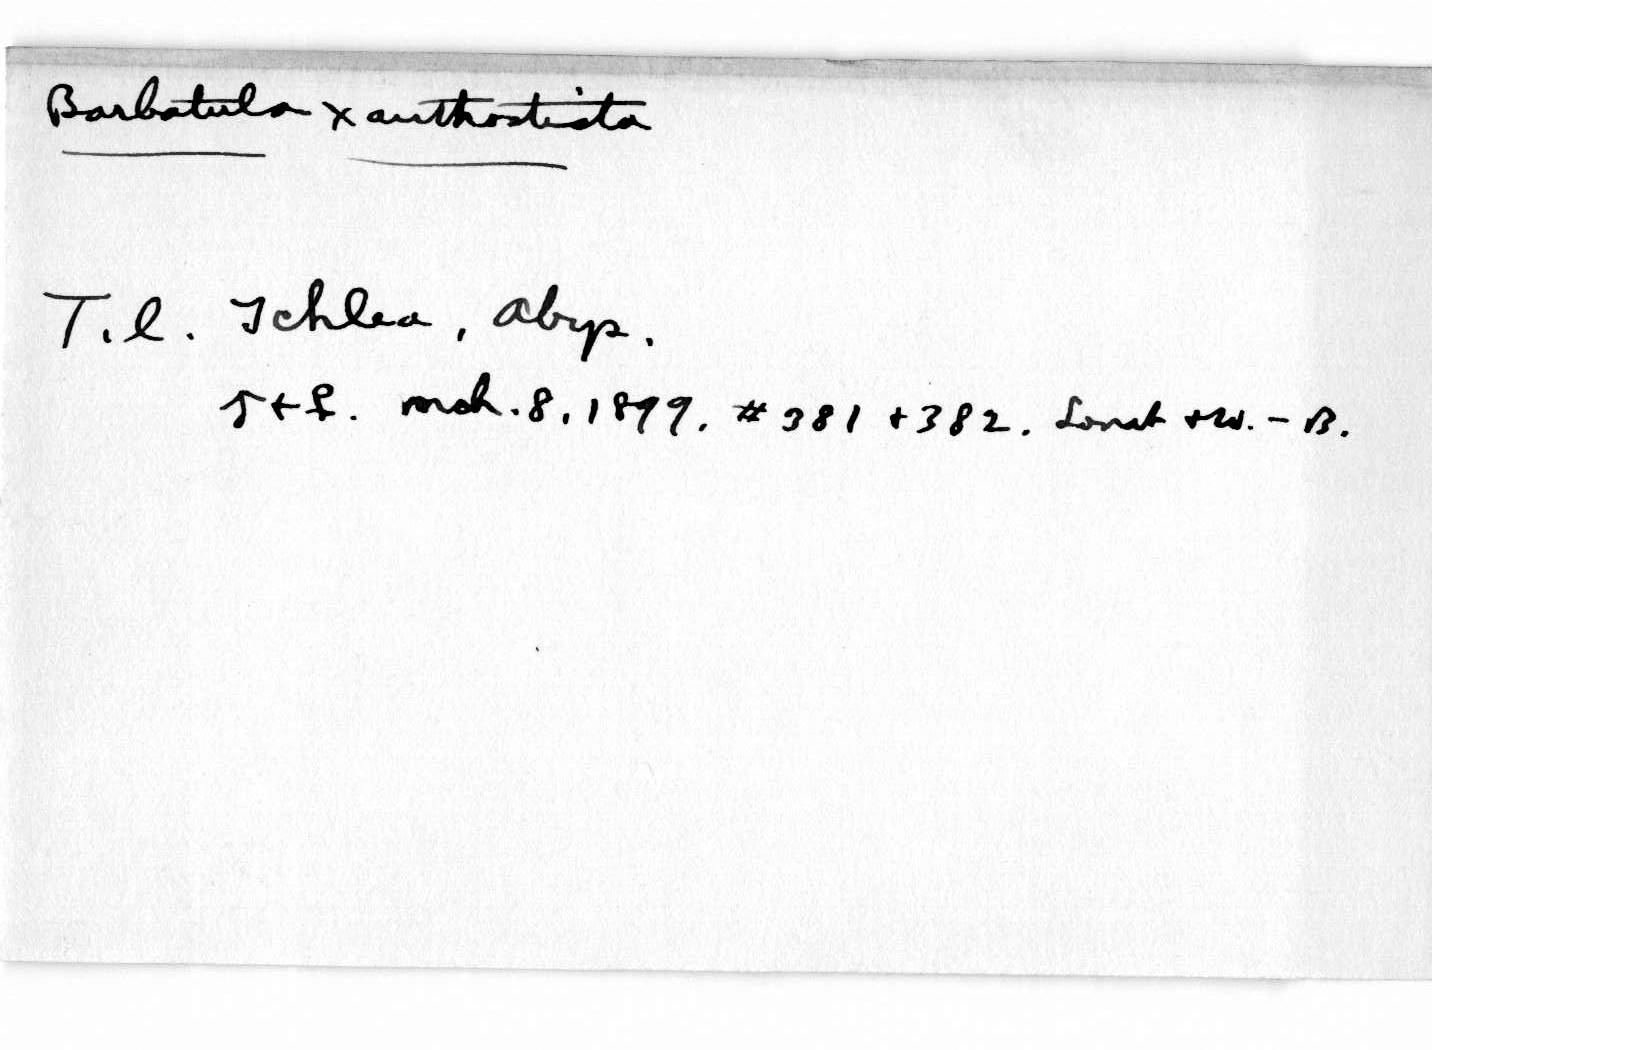 Barbatula xanthosticta
T.l. Ichlea, Abyp.
♂ + ♀. Mch. 8, 1899. # 381 + 382. Lovat + W. - B.